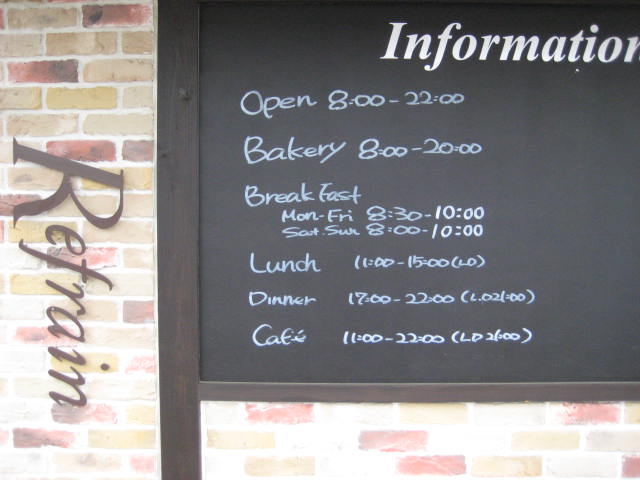 Refrain
Information
Open 8:00-22:00
Bakery 8:00-20:00
Breakfast
Mon-Fri 8:30-10:00
Sat.Sun 8:00-10:00
Lunch 11:00-15:00(LO)
Dinner 17:00-22:00(L.O21:00)
Café 11:00-22:00(LO 21:00)